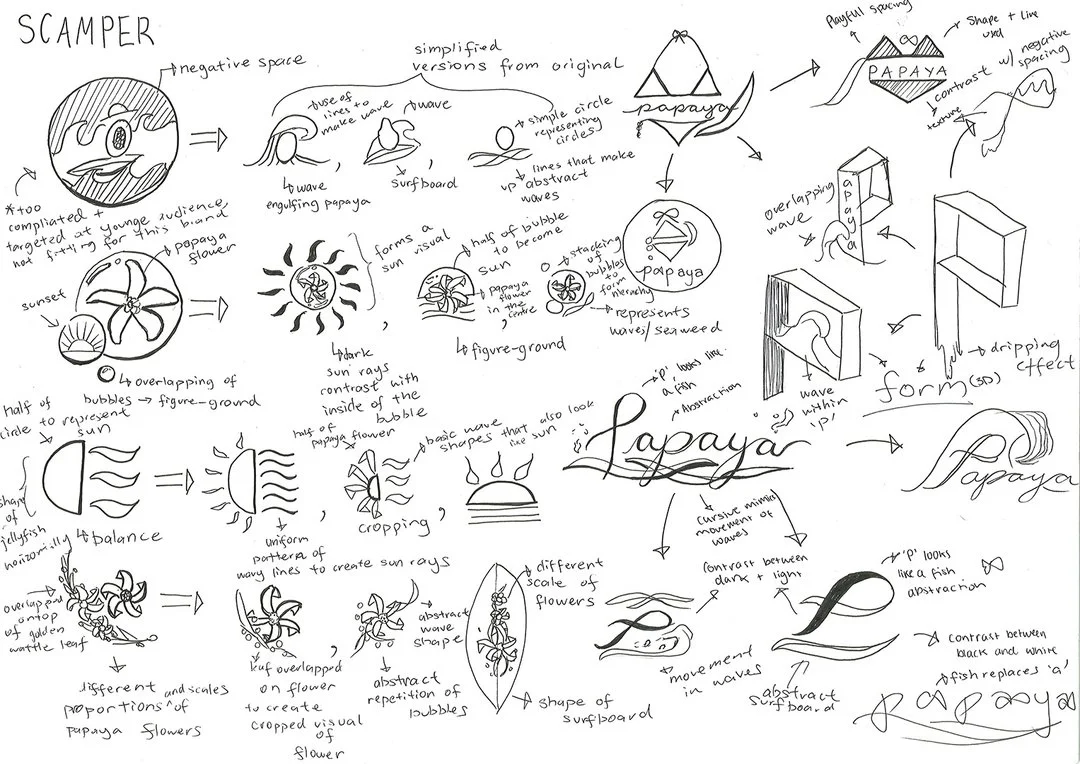 SCAMPER
negative space
simplified
versions from original
use of
lines to
make wave
wave
simple circle
representing
circles
wave
engulfing papaya
surfboard
lines that make
up abstract
waves
*too
compliated +
targeted at younge audience,
not fitting for this brand
papaya
Playful spacing
Shape + line
used
PAPAYA
contrast w/ negative
spacing
texture
overlapping
wave
apaya
papaya
papaya
flower
sunset
overlapping of
bubbles → figure-ground
forms a
sun visual
dark
sun rays
contrast with
inside of the
bubble
half of bubble
to become
sun
papaya
flower
in the
centre
figure-ground
stacking
of
bubbles
to
form
hierachy
represents
waves/seaweed
wave
within
'p'
dripping
effect
form(3D)
half of
circle to represent
sun
shape
of
jellyfish
horizontally
balance
uniform
pattern of
wavy lines to create sun rays
half of
papaya flower
cropping
basic wave
shapes that also look
like sun
'P' looks like
a fish
Abstraction
Papaya
cursive mimic
movement of
waves
Papaya
overlapped
ontop
of golden
wattle leaf
different and scales
proportions ^ of
papaya flowers
leaf overlapped
on flower
to create
cropped visual
of
flower
abstract
wave
shape
abstract
repetition of
bubbles
different
scale of
flowers
shape of
surfboard
contrast between
dark + light
movement
in waves
'P' looks
like a fish
abstraction
abstract
surfboard
contrast between
black and white
fish replaces 'a'
papaya